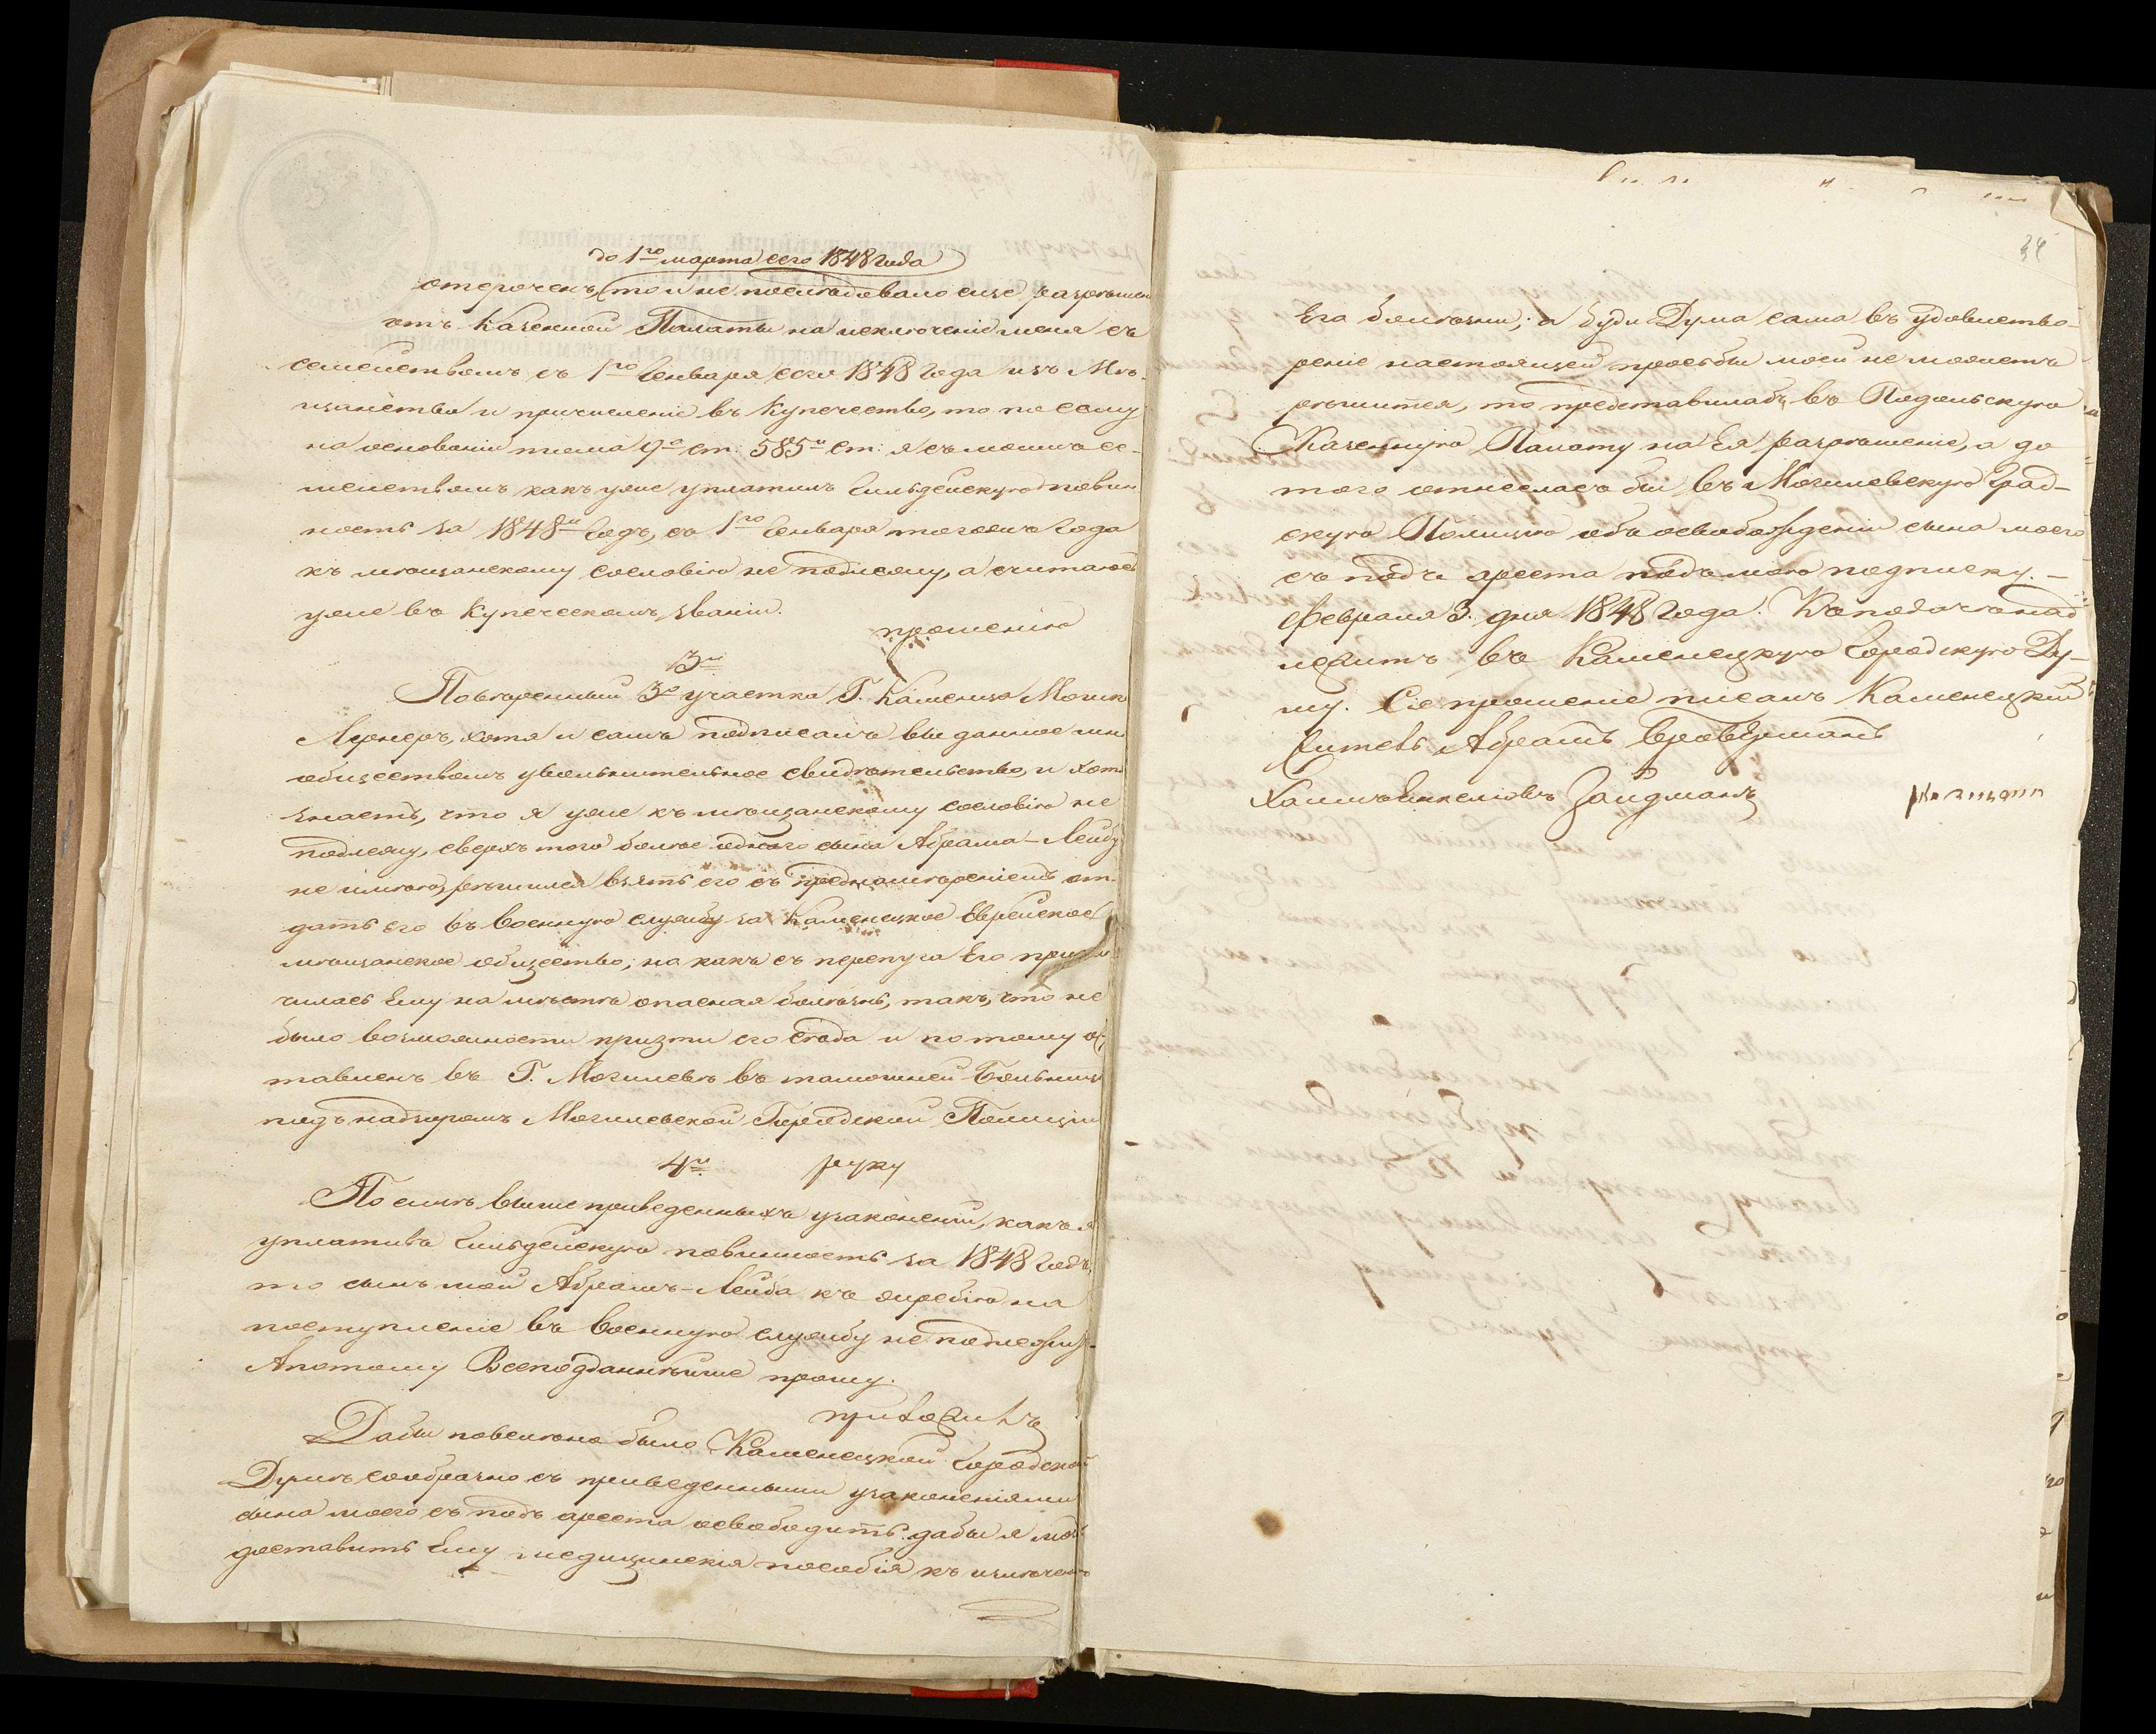 до 1го марта сего 1848 года
отсрочен, то и не последовало еще разрешен
отъ Казенной Палаты на исключеніе меня съ
семействомъ съ 1го Генваря сего 1848 года изъ Мѣ-
щанства и причисленіе въ Купечество, то по сему
на основаніи тома 9го ст: 585й ст: я съ моимъ се-
мействомъ какъ уже уплатилъ Гильдейскую повин
ность за 1848й годъ, съ 1го Генваря тогожъ года
къ мѣщанскому сословію не подлежу, а считаюсь
уже въ Купеческомъ званіи.
прошенію
3е
Повѣренный 3го участка Г. Каменца
Лернеръ, хотя и самъ подписалъ выданное мнѣ
обществомъ увольнительное свидѣтельство, и хотя
знаетъ, что я уже къ мѣщанскому сословію не
подлежу, сверхъ того болѣе одного сына Абрама-Лейбу
не имѣю, рѣшился взять его съ преднамѣреніемъ от-
дать его въ военную службу за Каменецкое Еврейское
мѣщанское общество; но какъ съ перепуга Его приклю
чилась Ему на мѣстѣ опасная болѣзнь, такъ, что не
было возможности
 его сюда и по тому ос
тавленъ въ Г. Могилевѣ въ тамошней Больницѣ
подъ надзоромъ Могилевской Городской Полиціи
4е
руку
По силѣ вышеприведенныхъ узаконеній, какъ я
уплативъ Гильдейскую повинность за 1848 годъ,
то сынъ мой Абрамъ-Лейба къ жребію на
поступленіе въ военную службу не подлежитъ.
А потому Всеподданнѣйше прошу.
приложилъ
Дабы повелѣно было Каменецкой Городской
Думѣ сообразно съ приведенными узаконеніями
сына моего съ подъ ареста освободить дабы я могъ
доставить Ему медицинскія пособія къ излѣченію
34
Его болѣзни; а буди Дума сама въ удовлетво-
реніе настоящей просьбы моей не можетъ
рѣшится, то представилабъ въ Подольскую
Казенную Палату на Ея разрѣшеніе, а до
того отнеслась бы въ Могилевскую Град-
скую Полицію объ освобожденіи сына моего
съ подъ ареста подъ мою подписку.-
Февраля 3. дня 1848 года. Къ подачѣ над
лежитъ въ Каменецкую Городскую Ду-
му. Сіе прошеніе писалъ Каменецкій
житель Абрамъ
Хаимъ Янкеліовъ Зайдманъ